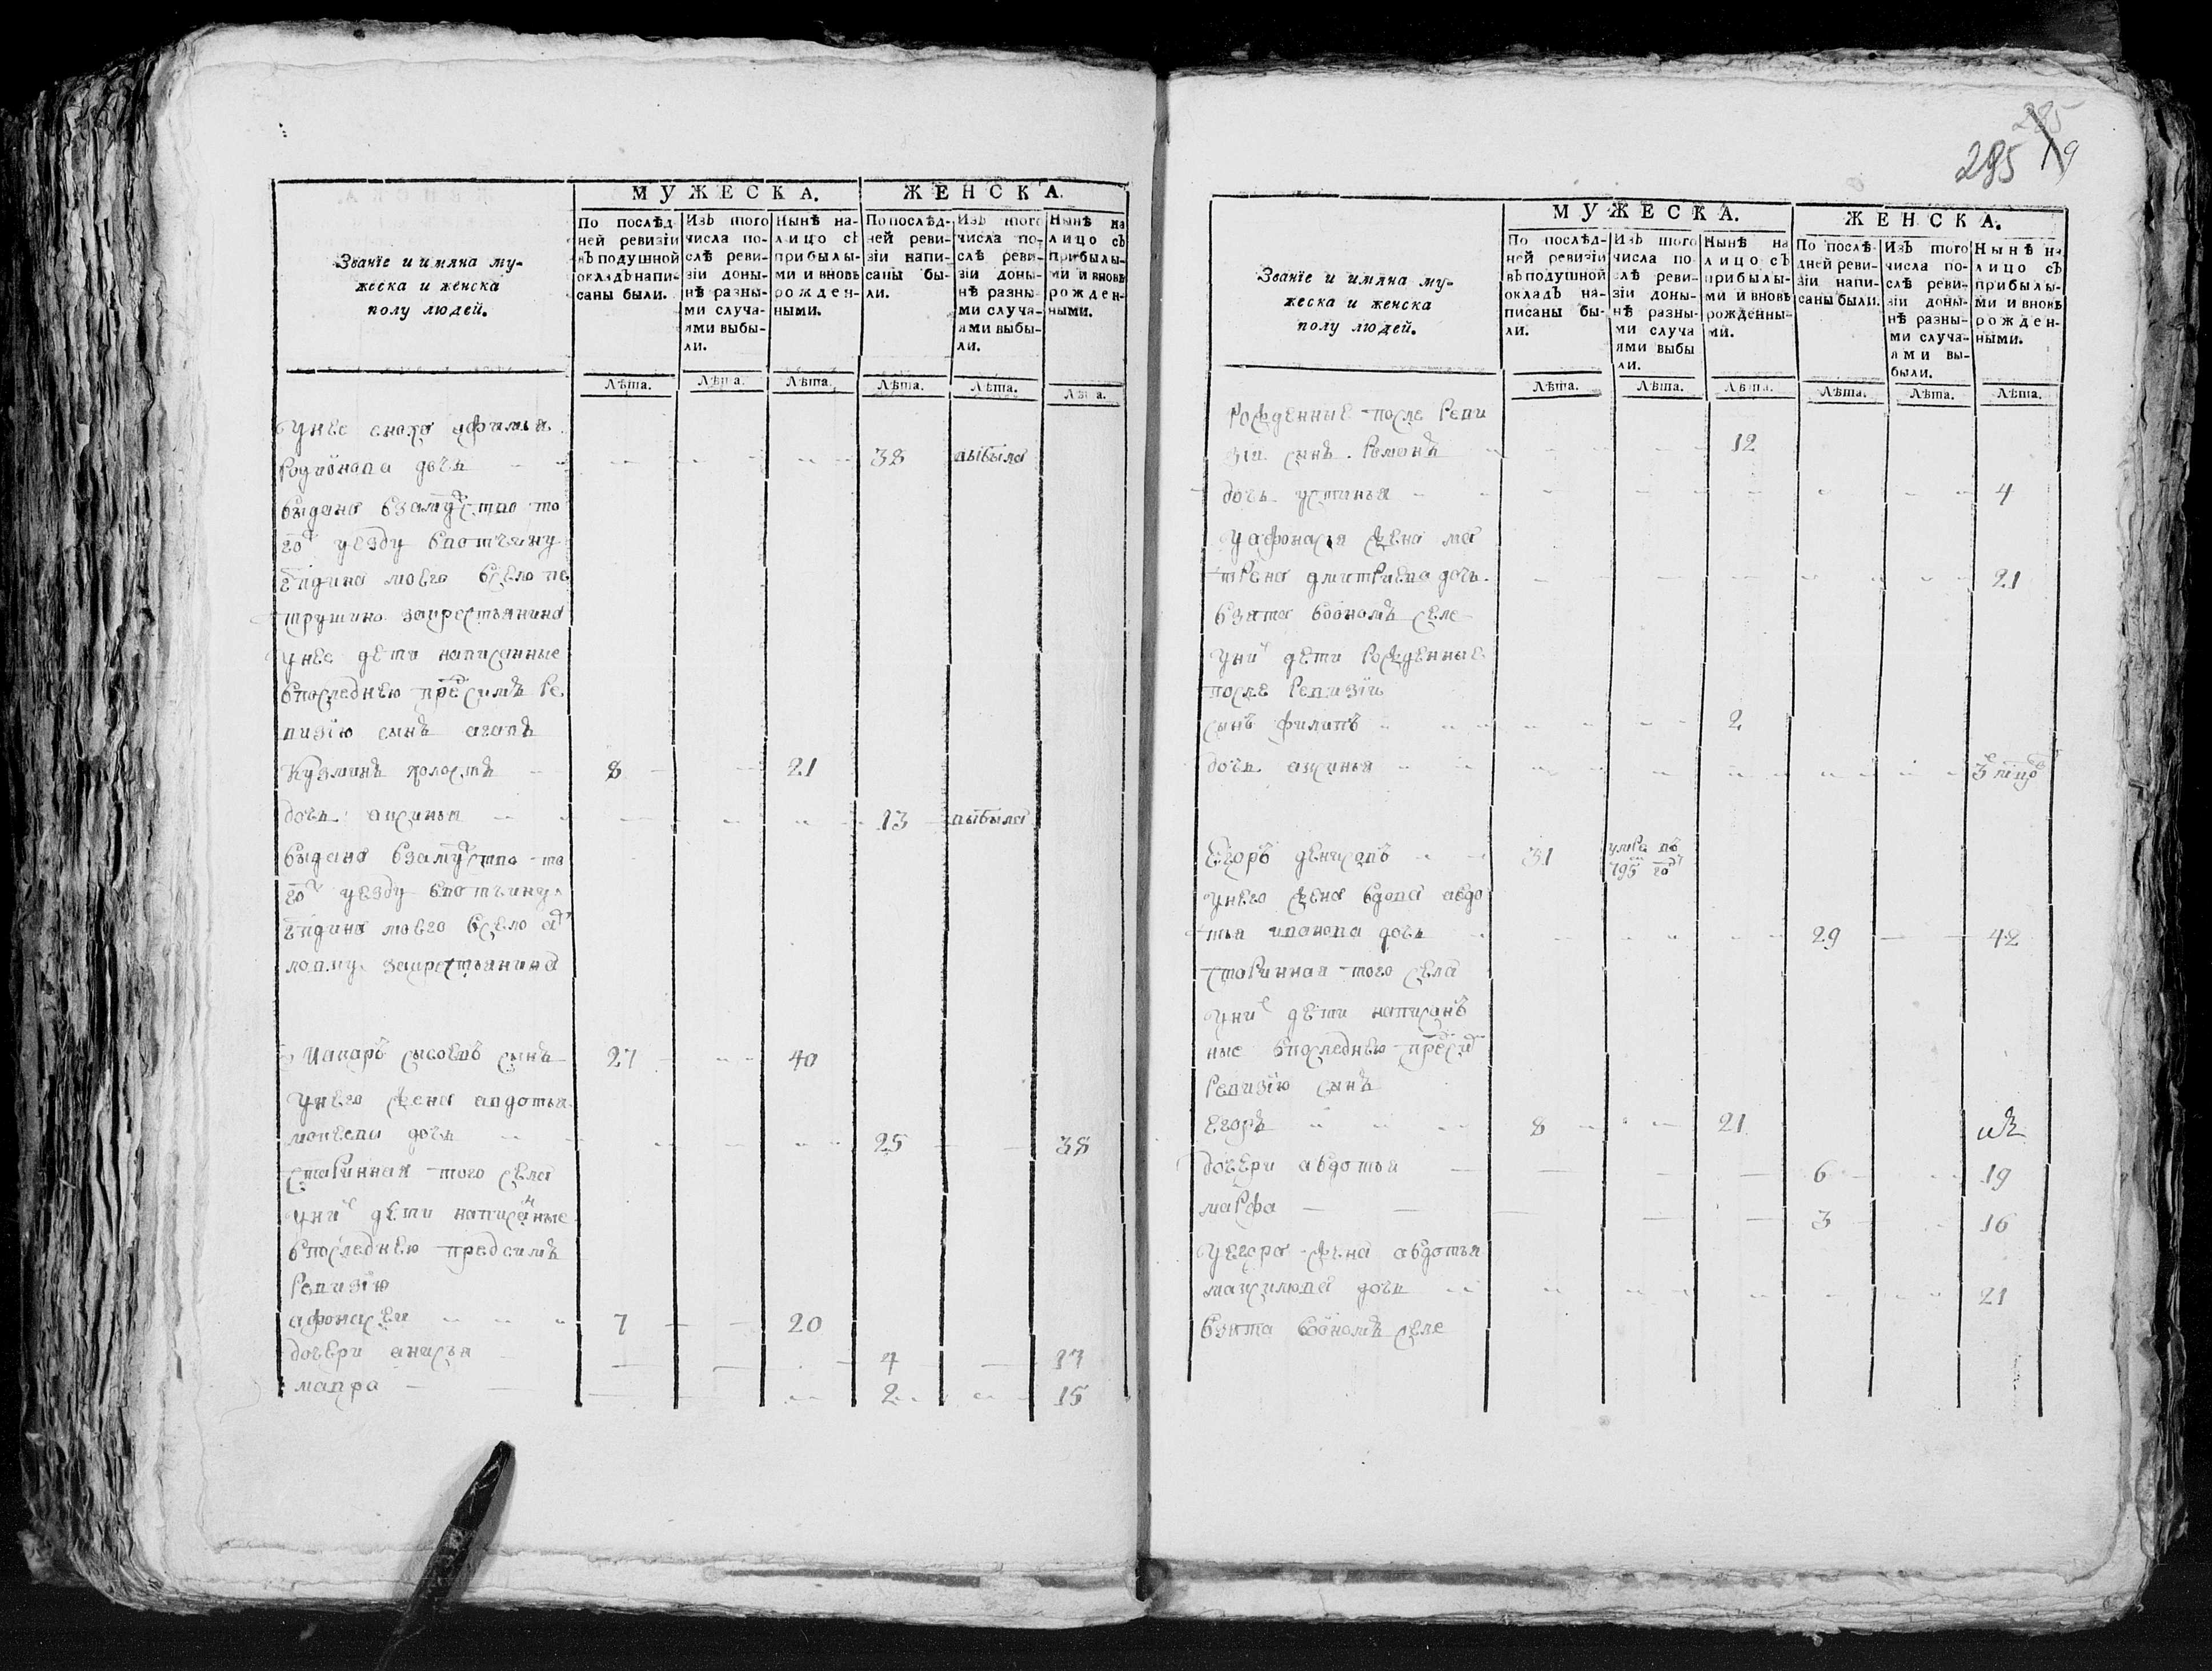 МУЖЕСКА. ЖЕНСКА.
Званїе и имяна му-
жеска и женска
полу людей.
По послѣд-
ней ревизїи
въ подушной
окладъ напи-
саны были.
Изъ того
числа по-
слѣ реви-
зїи доны-
нѣ разны-
ми случа-
ями выбы-
ли.
Нынѣ на-
лицо съ
прибылы-
ми и вновь
рожден-
ными.
По послѣд-
ней реви-
зїи напи-
саны бы-
ли.
Изъ того
числа по-
слѣ реви-
зїи доны-
нѣ разны-
ми случа-
ями выбы-
ли.
Нынѣ на
лицо съ
прибылы-
ми и вновь
рожден-
ными.
Лѣта. Лѣта. Лѣта. Лѣта. Лѣта. Лѣта.
унее сноха афимья
родионова дочь 38 выбыла
выдана взамужство то
гож уезду вотчину
гпдина моего всело пе
трушино закрестьянина
унее дети написанные
впоследнею пред симъ ре
визїю сынъ агапъ
Кузминъ холостъ 8 21
дочь аксинья 13 выбыла
выдана взамужство то
гож уезду вотчину
гпдина моего всело
закрестьянина
Макаръ сысоевъ сынъ 27 40
унего жена авдотья
мокеева дочь 25 38
старинная того села
уних дети написаные
впоследнею предсимъ
ревизїю
афонасеи 7 20
дочери анисья 4 17
мавра 2 15
285
285
9
МУЖЕСКА. ЖЕНСКА.
Званїе и имяна му-
жеска и женска
полу людей.
По послѣд-
ней ревизїи
въ подушной
окладъ на-
писаны бы-
ли.
Изъ того
числа по
слѣ реви-
зїи доны-
нѣ разны-
ми случа
ями выбы
ли.
Нынѣ на
лицо съ
прибылы-
ми и вновь
рожденны-
ми.
По послѣ-
дней реви-
зїи напи-
саны были.
Изъ того
числа по-
слѣ реви-
зїи доны-
нѣ разны-
ми случа-
ями вы-
были.
Нынѣ на
лицо съ
прибылы-
ми и вновь
рожден-
ными.
Лѣта. Лѣта. Лѣта. Лѣта. Лѣта. Лѣта.
рожденные после реви
зїи сынъ романъ 12
дочь устинья 4
уафонасья жена ма
трена дмитриева дочь 21
взята водномъ селе
уних дети рожденные
после ревизїи
сынъ филипъ 2
дочь аксинья
Егоръ денисовъ 31 умре въ
795 год
унего жена вдова авдо
тья иванова дочь 29 42
старинная того села
уних дети написанъ
ные впоследнею пред сиї
ревизїю сынъ
егоръ 8 21
дочери авдотья 6 19
марфа 3 16
уегора жена авдотья
максимова дочь 21
взята водномъ селе